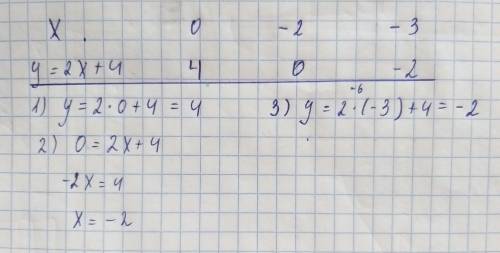 x 0 -2 -3
y = 2x + 4 4 0 -2
1) y = 2 · 0 + 4 = 4
2) 0 = 2x + 4
-2x = 4
x = -2
-6
3) y = 2 · (-3) + 4 = -2